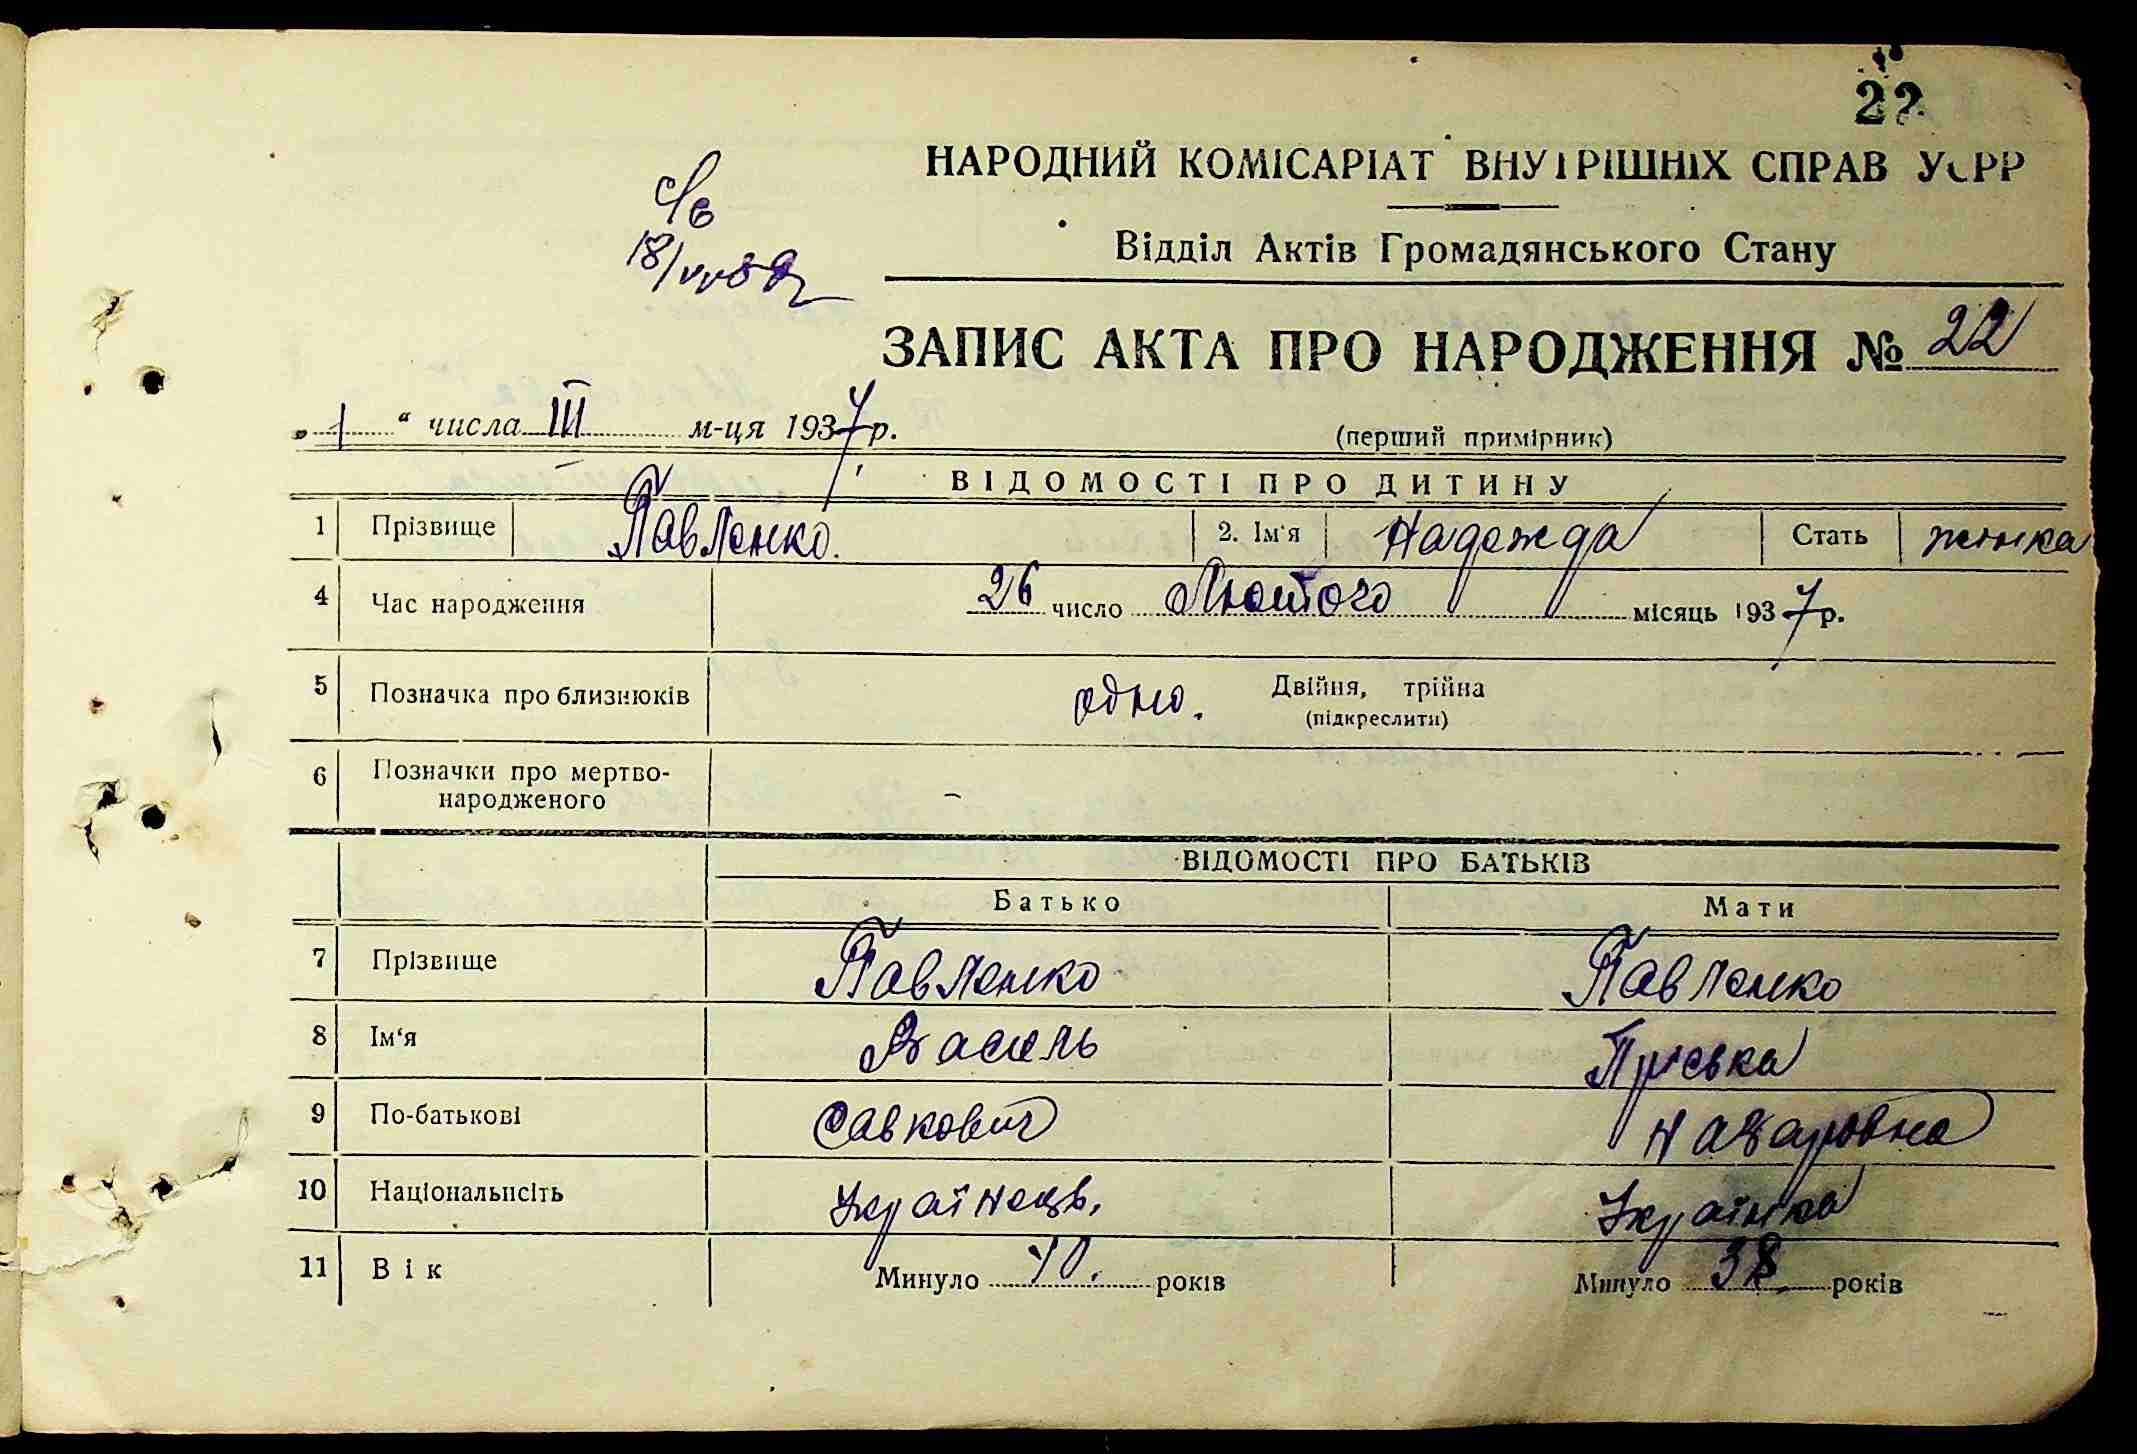 22
НАРОДНИЙ КОМІСАРІАТ ВНУТРІШНІХ СПРАВ УСРР
Відділ Актів Громадянського Стану
ЗАПИС АКТА ПРО НАРОДЖЕННЯ № 22
„1“ числа III м-ця 1937 р.
(перший примірник)
ВІДОМОСТІ ПРО ДИТИНУ
1 Прізвище Павленко. 2. Ім'я Надежда Стать жінка
4 Час народження 26 число Лютого місяць 1937 р.
5 Позначка про близнюків одно. Двійня, трійна
(підкреслити)
6 Позначки про мертво-
народженого –
ВІДОМОСТІ ПРО БАТЬКІВ
Батько Мати
7 Прізвище Павленко Павленко
8 Ім'я Василь Пріська
9 По-батькові Савкович Назаровна
10 Національність Українець. Українка
11 Вік Минуло 40. років Минуло 38 років